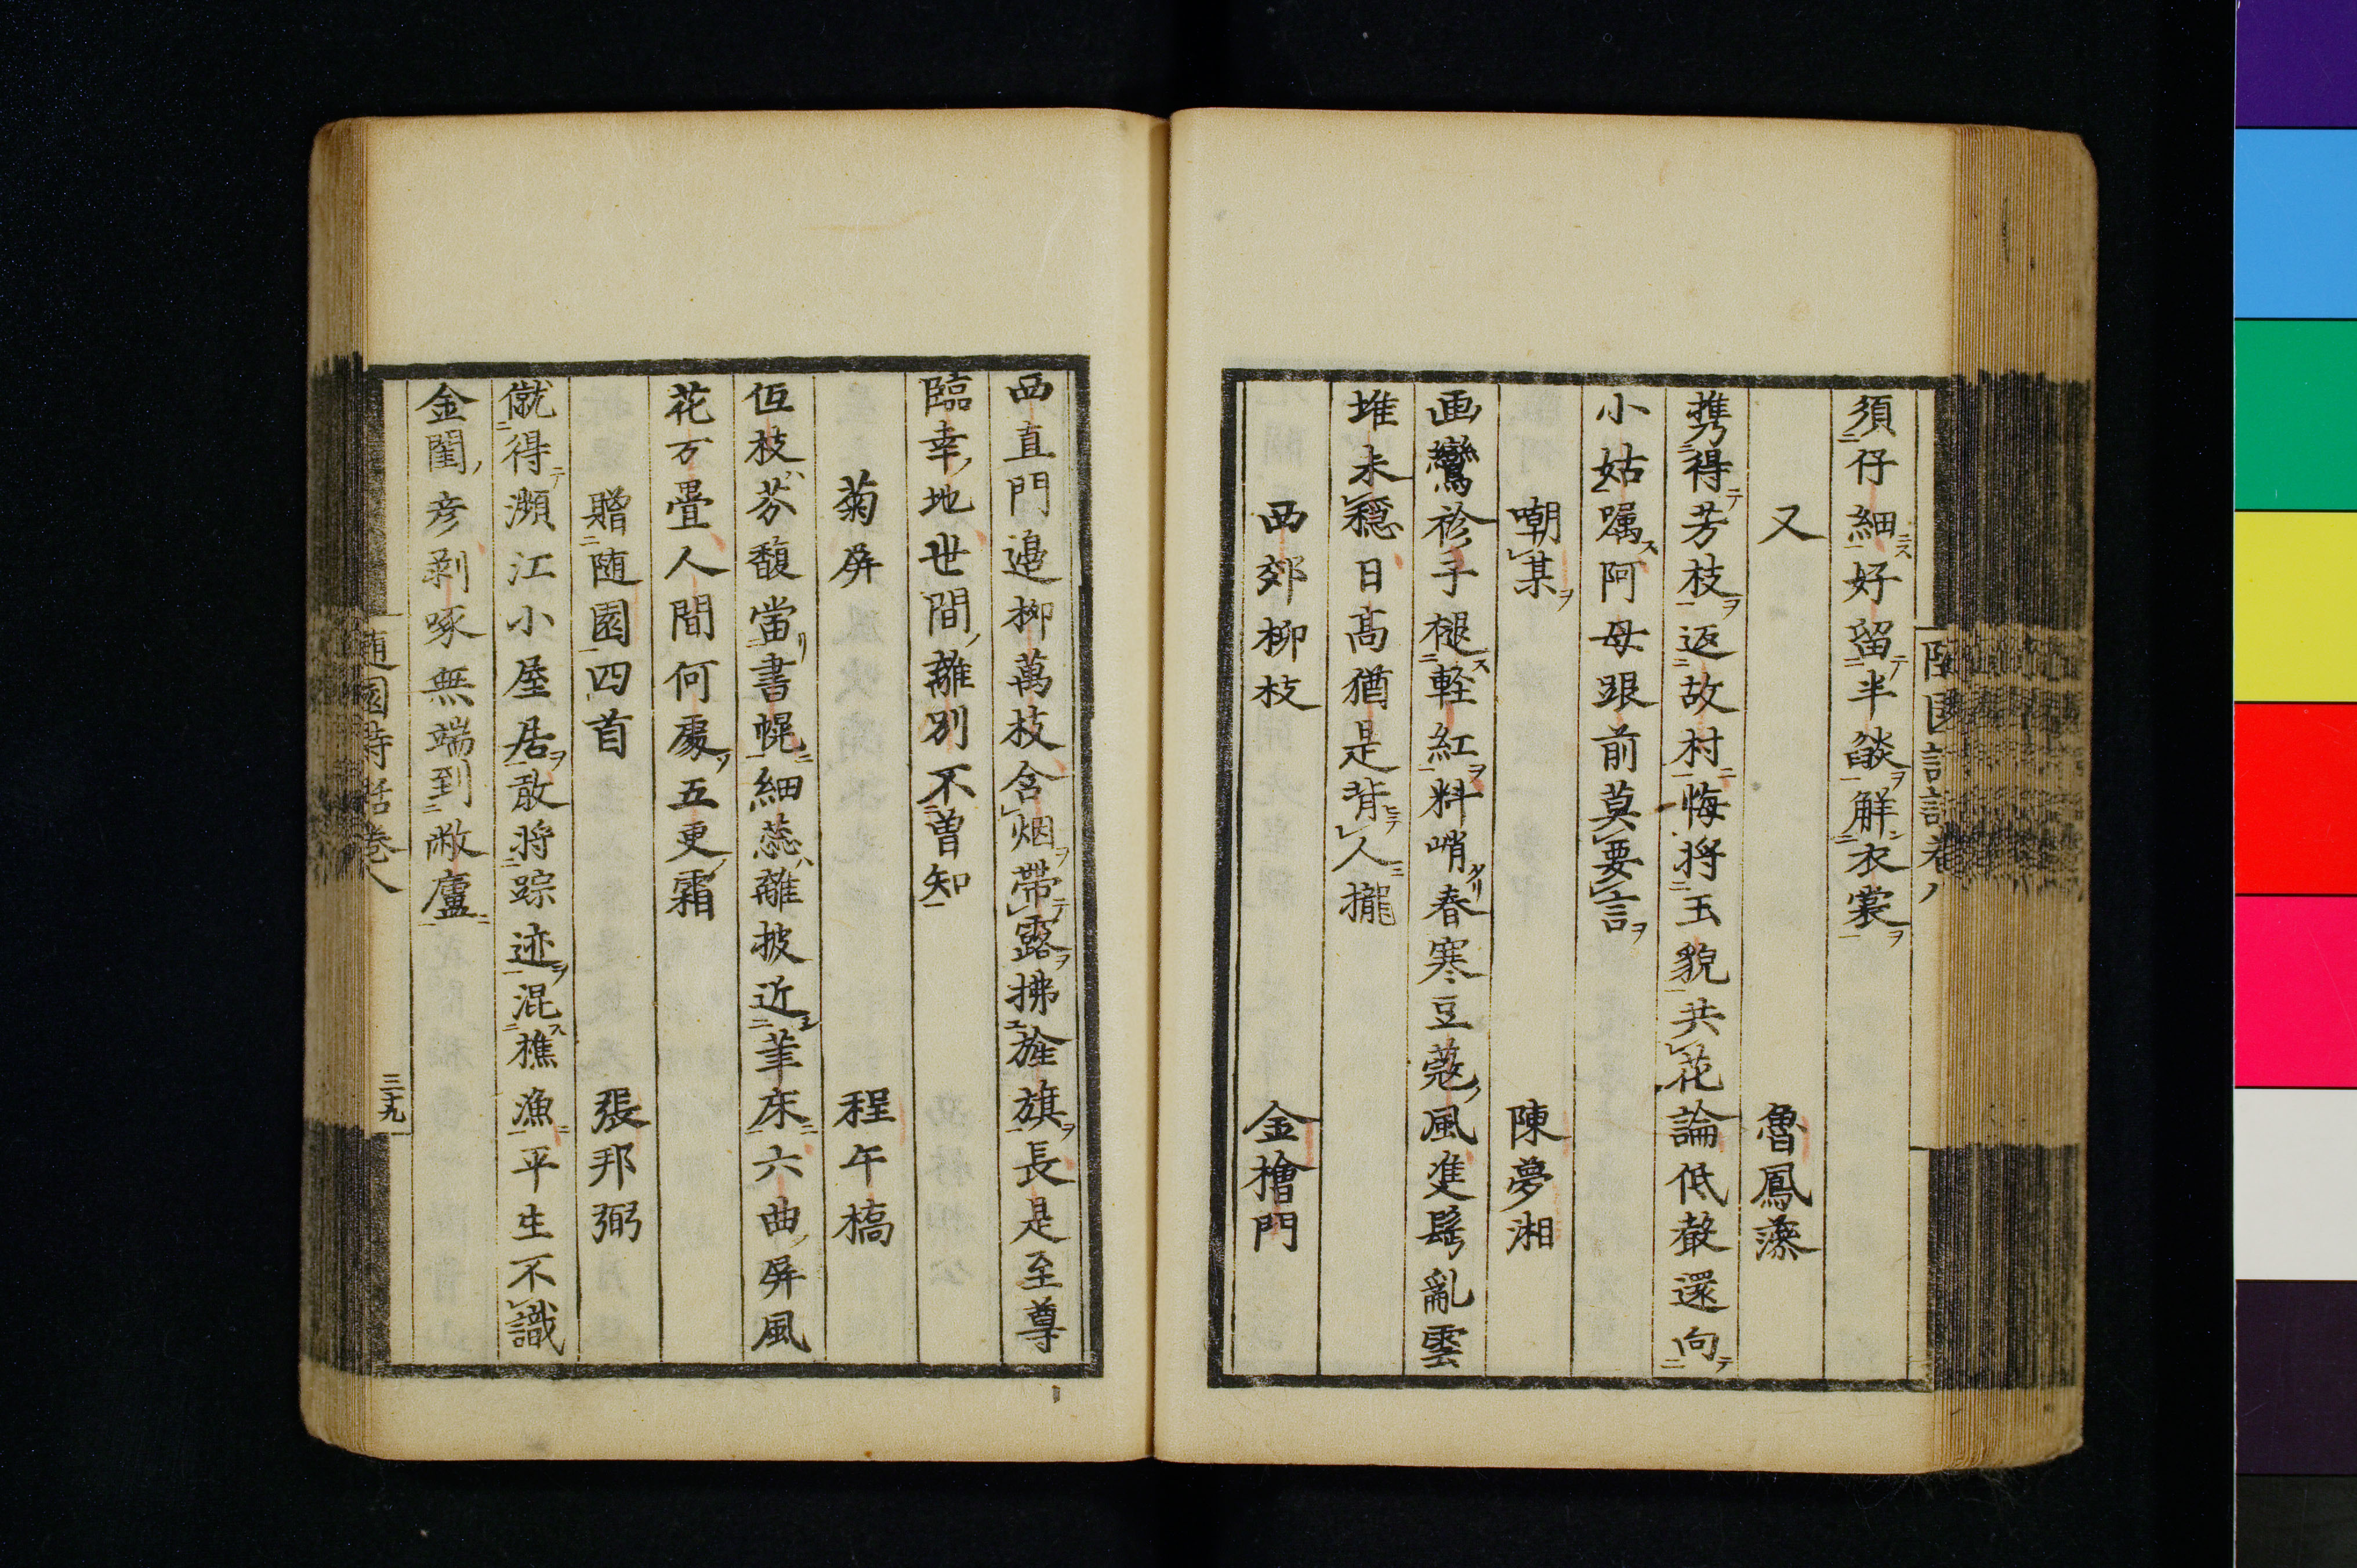 須仔細好留半燄解衣裳
又　魯鳳藻
携得芳枝返故村悔将玉貌共花論低聲還向
小姑嘱阿母跟前莫要言
嘲某　陳夢湘
画鸞袗手褪軽紅料峭春寒豆蔻風隻髩亂雲
堆未穏日高猶是背人攏
西郊柳枝　金檜門
西直門邉柳萬枝含烟帯露拂旌旗長是至尊
臨幸地世間離別不曽知
菊屏　程午橋
佰枝芬馥當書幌細蕊離披近筆床六曲屏風
花万畳人間何處五更霜
贈随園四首　張邦弼
僦得瀕江小屋居敢将踪迹混樵漁平生不識
金閨彦剥啄無端到敝廬
随園詩話巻八
三十九